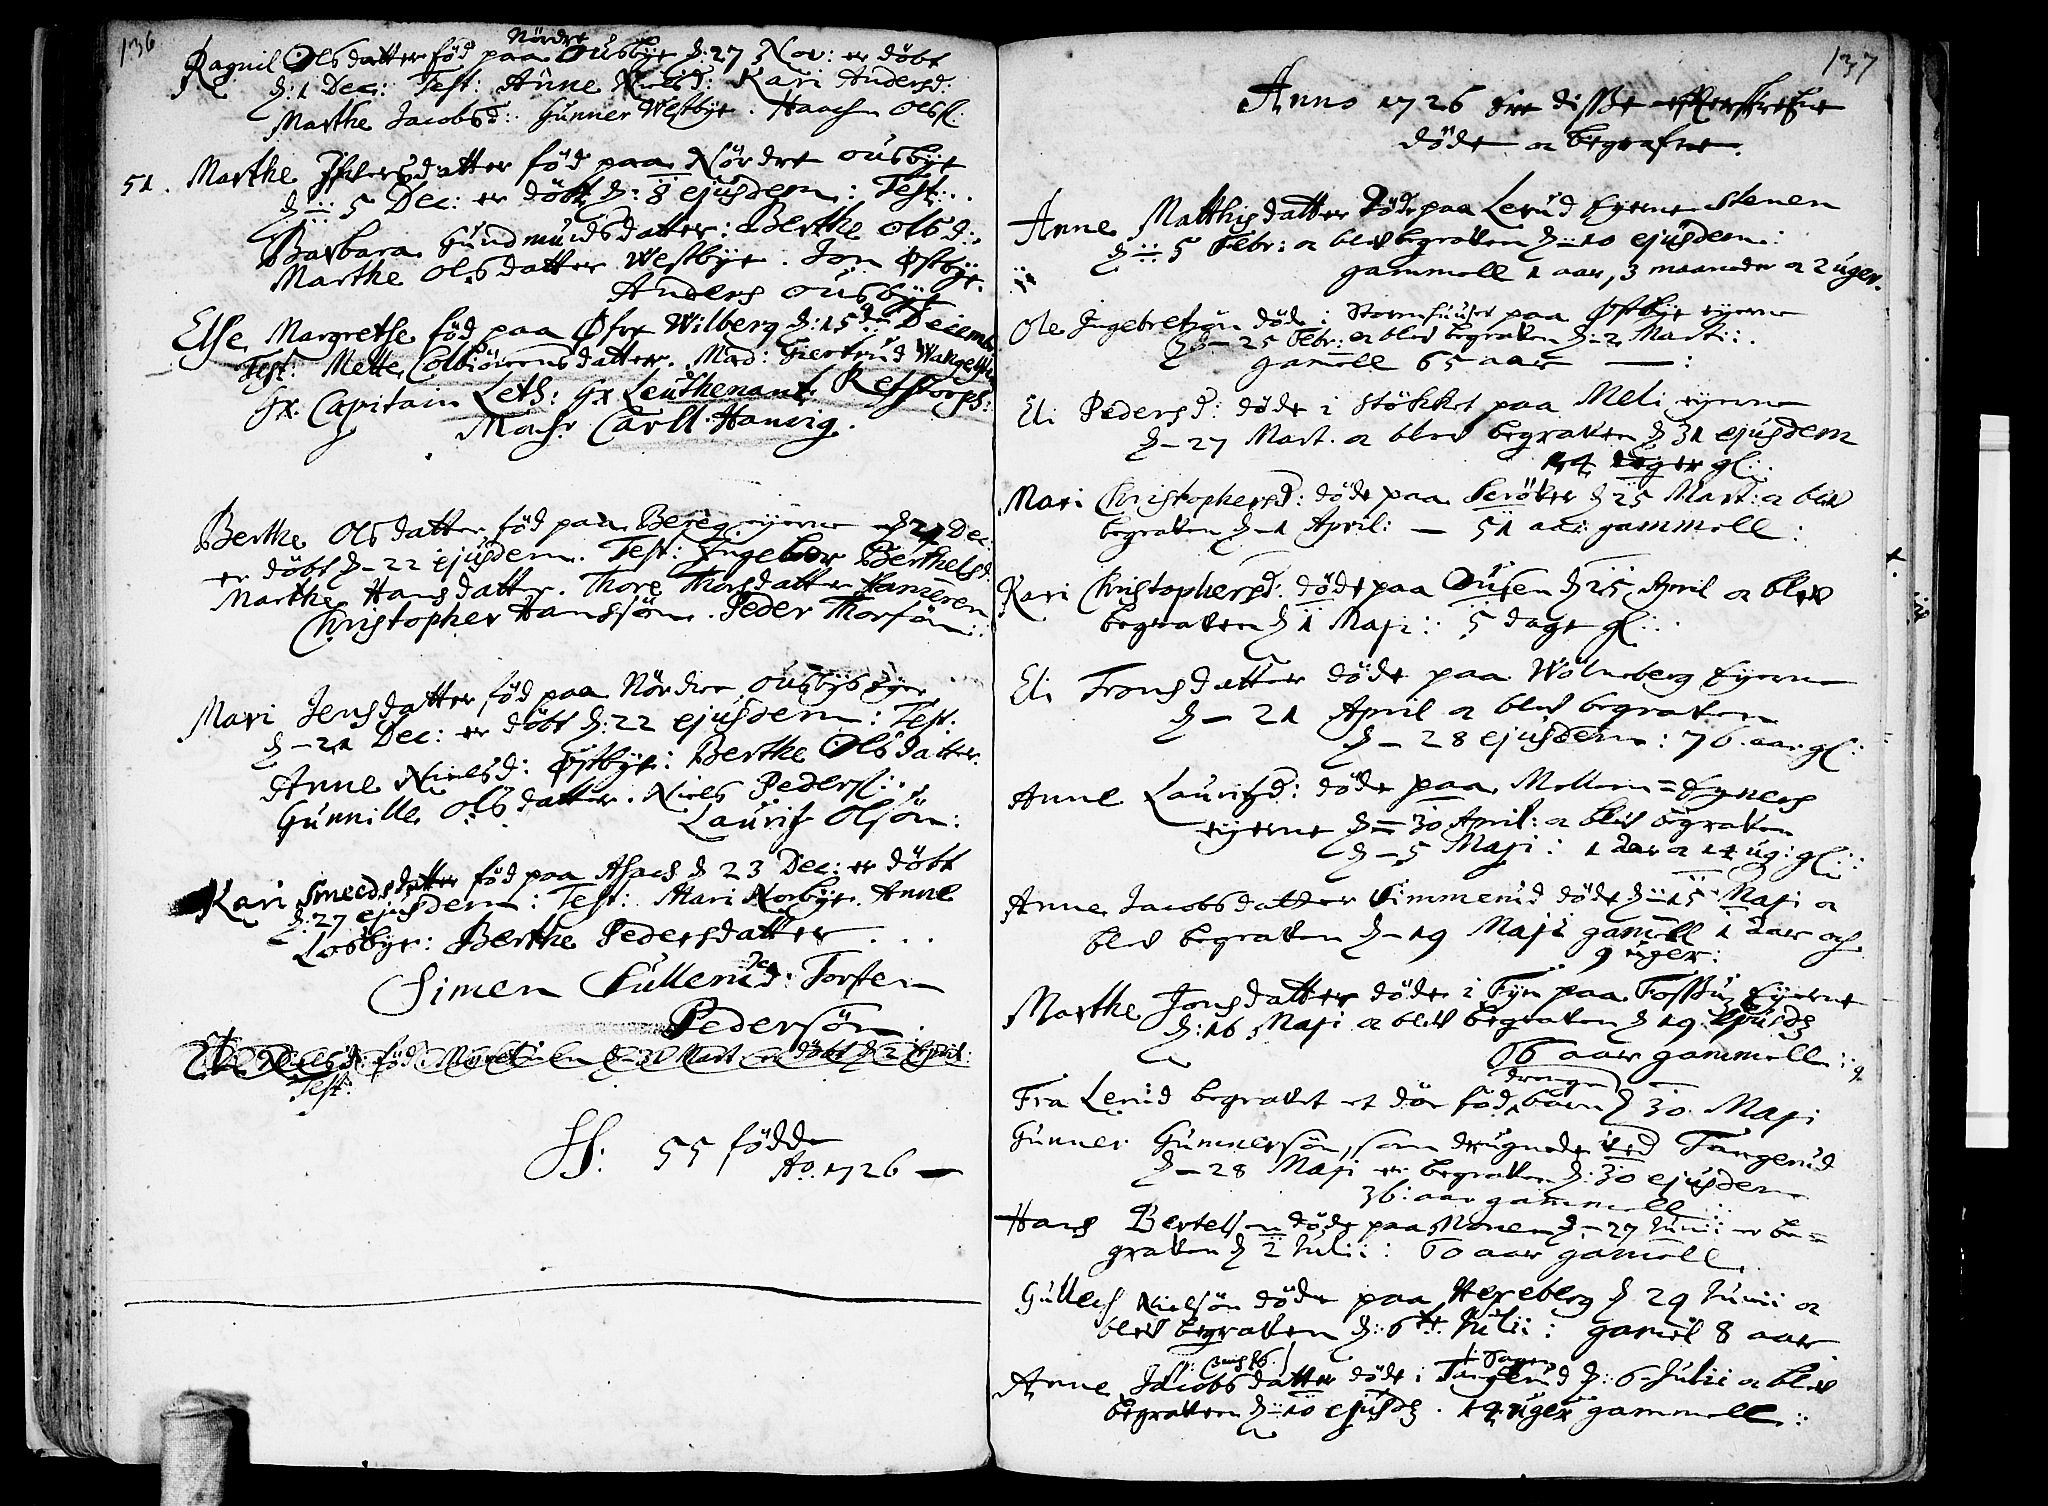 136
Ragnil Olsdatter fød paa Nördre Ousbÿe d: 27 Nov: er döbt
d: 1 Dec: Test: Anne Nielsd: Kari Andersd:
Marthe Jacobsd: Gunner Westbÿe. Haagen Olss:
51. Marthe Iffversdatter fød paa Nördre Ousbÿe
d: 5 Dec: er döbt d: 8 ejusdem: Test:
Barbara Gudmundsdatter: Berthe Olsd:
Marthe Olsdatter Westbÿe. Jon Østbÿe.
Anders Ousbÿe
Else Margrethe fød paa Øfre Wilberg d: 15de Decemb
Test: Mette Colbiörnsdatter. Mad: Giertrud
Hr. Capitain Leth: Hr Leuthenant Retstorph:
Monsr Carll Hanvig.
Berthe Olsdatter fød paa Bereg eyerne d 21 Dec:
er döbt d - 22 ejusdem. Test: Ingebor Berthelsd:
Marthe Hansdatter. Thore Thorsdatter Hameren
Christopher Hanssön. Peder Thorsön:
Mari Jensdatter fød paa Nördre Ousbÿs eyer
d - 21 Dec: er döbt d: 22 ejusdem: Test:
Anne Nielsd: Østbÿe: Berthe Olsdatter.
Gunnille Olsdatter. Niels Peders:
Laurits Olsön:
Kari Smedsdatter fød paa Asach d 23 Dec: er döbt
d: 27 ejusdem: Test: Mari Norbÿe. Anne
Losbye: Berthe Pedersdatter
Simen Tullerud: Torsten
Pedersön.
Nielsd: fød d: 31 Mart er döbt d 2 April:
Test:
S: 55 fødde
Ao. 1726
137
Anno 1726 ere disse efterskrefne
döde oc begrafne.
Anne Matthisdatter döde paa Lerud Eyerne Stenen
d: 5 Febr: oc blev begraven d: 10 ejusdem:
gammell 1 aar, 3 maaneder oc 2 uger.
Ole Ingebretsön döde i Stormhuuset paa Østbÿe eyerne
d - 25 Febr: oc blev begraven d: 2 Martii:
gamell 65 aar
Eli Pedersd: döde i stökket paa Meli eyerne
d - 27 Mart. oc blev begraven d 31 ejusdem
14 uger gl:
Mari Christophersd: döde paa d 25 Mart: oc blev
begraven d - 1 April: - 51 aar gammell:
Kari Christophersd: döde paa Ousen d 25 April oc blev
begraven d 1 Maji: 5 dage gl:
Eli Tronsdatter döde paa Wölneberg Eyerne
d - 21 April oc blev begraven
d - 28 ejusdem: 76 aar gl:
Anne Lauritzd: döde paa Mellem = Eyners
eyerne d = 30 April: oc blev begraven
d - 5 Maji: 1 aar oc 14 ug: gl:
Anne Jacobsdatter Simmerud döde d: 15 Maji oc
blev begraven d - 19 Maji gamell 1 aar och
9 uger:
Marthe Jonsdatter döde i Fyri paa Fossum Eyerne
d: 16 Maji oc blev begraven d 19. ejusd
66 aar gammell:
Fra Lerud begravet et dö fød drenge barn d 30. Maji
Gunner Gunnersön, som drugnede ved Tangerud
d - 28 Maji er begraven d: 30 ejusdem
36: aar gammell
Hans Bertelsen döde paa Monen d - 27 Junii er be=
graven d 2 Julii: 60 aar gamell.
Gulbech Nielsön döde paa Hereberg d 29 Junii oc
blev begraven d: 6te Julii: gamel 8 aar
Anne Jacobsdatter döde i Tangerud d: 6 Julii oc blev
begraven d: 10 ejusd. 14 uger gammell: